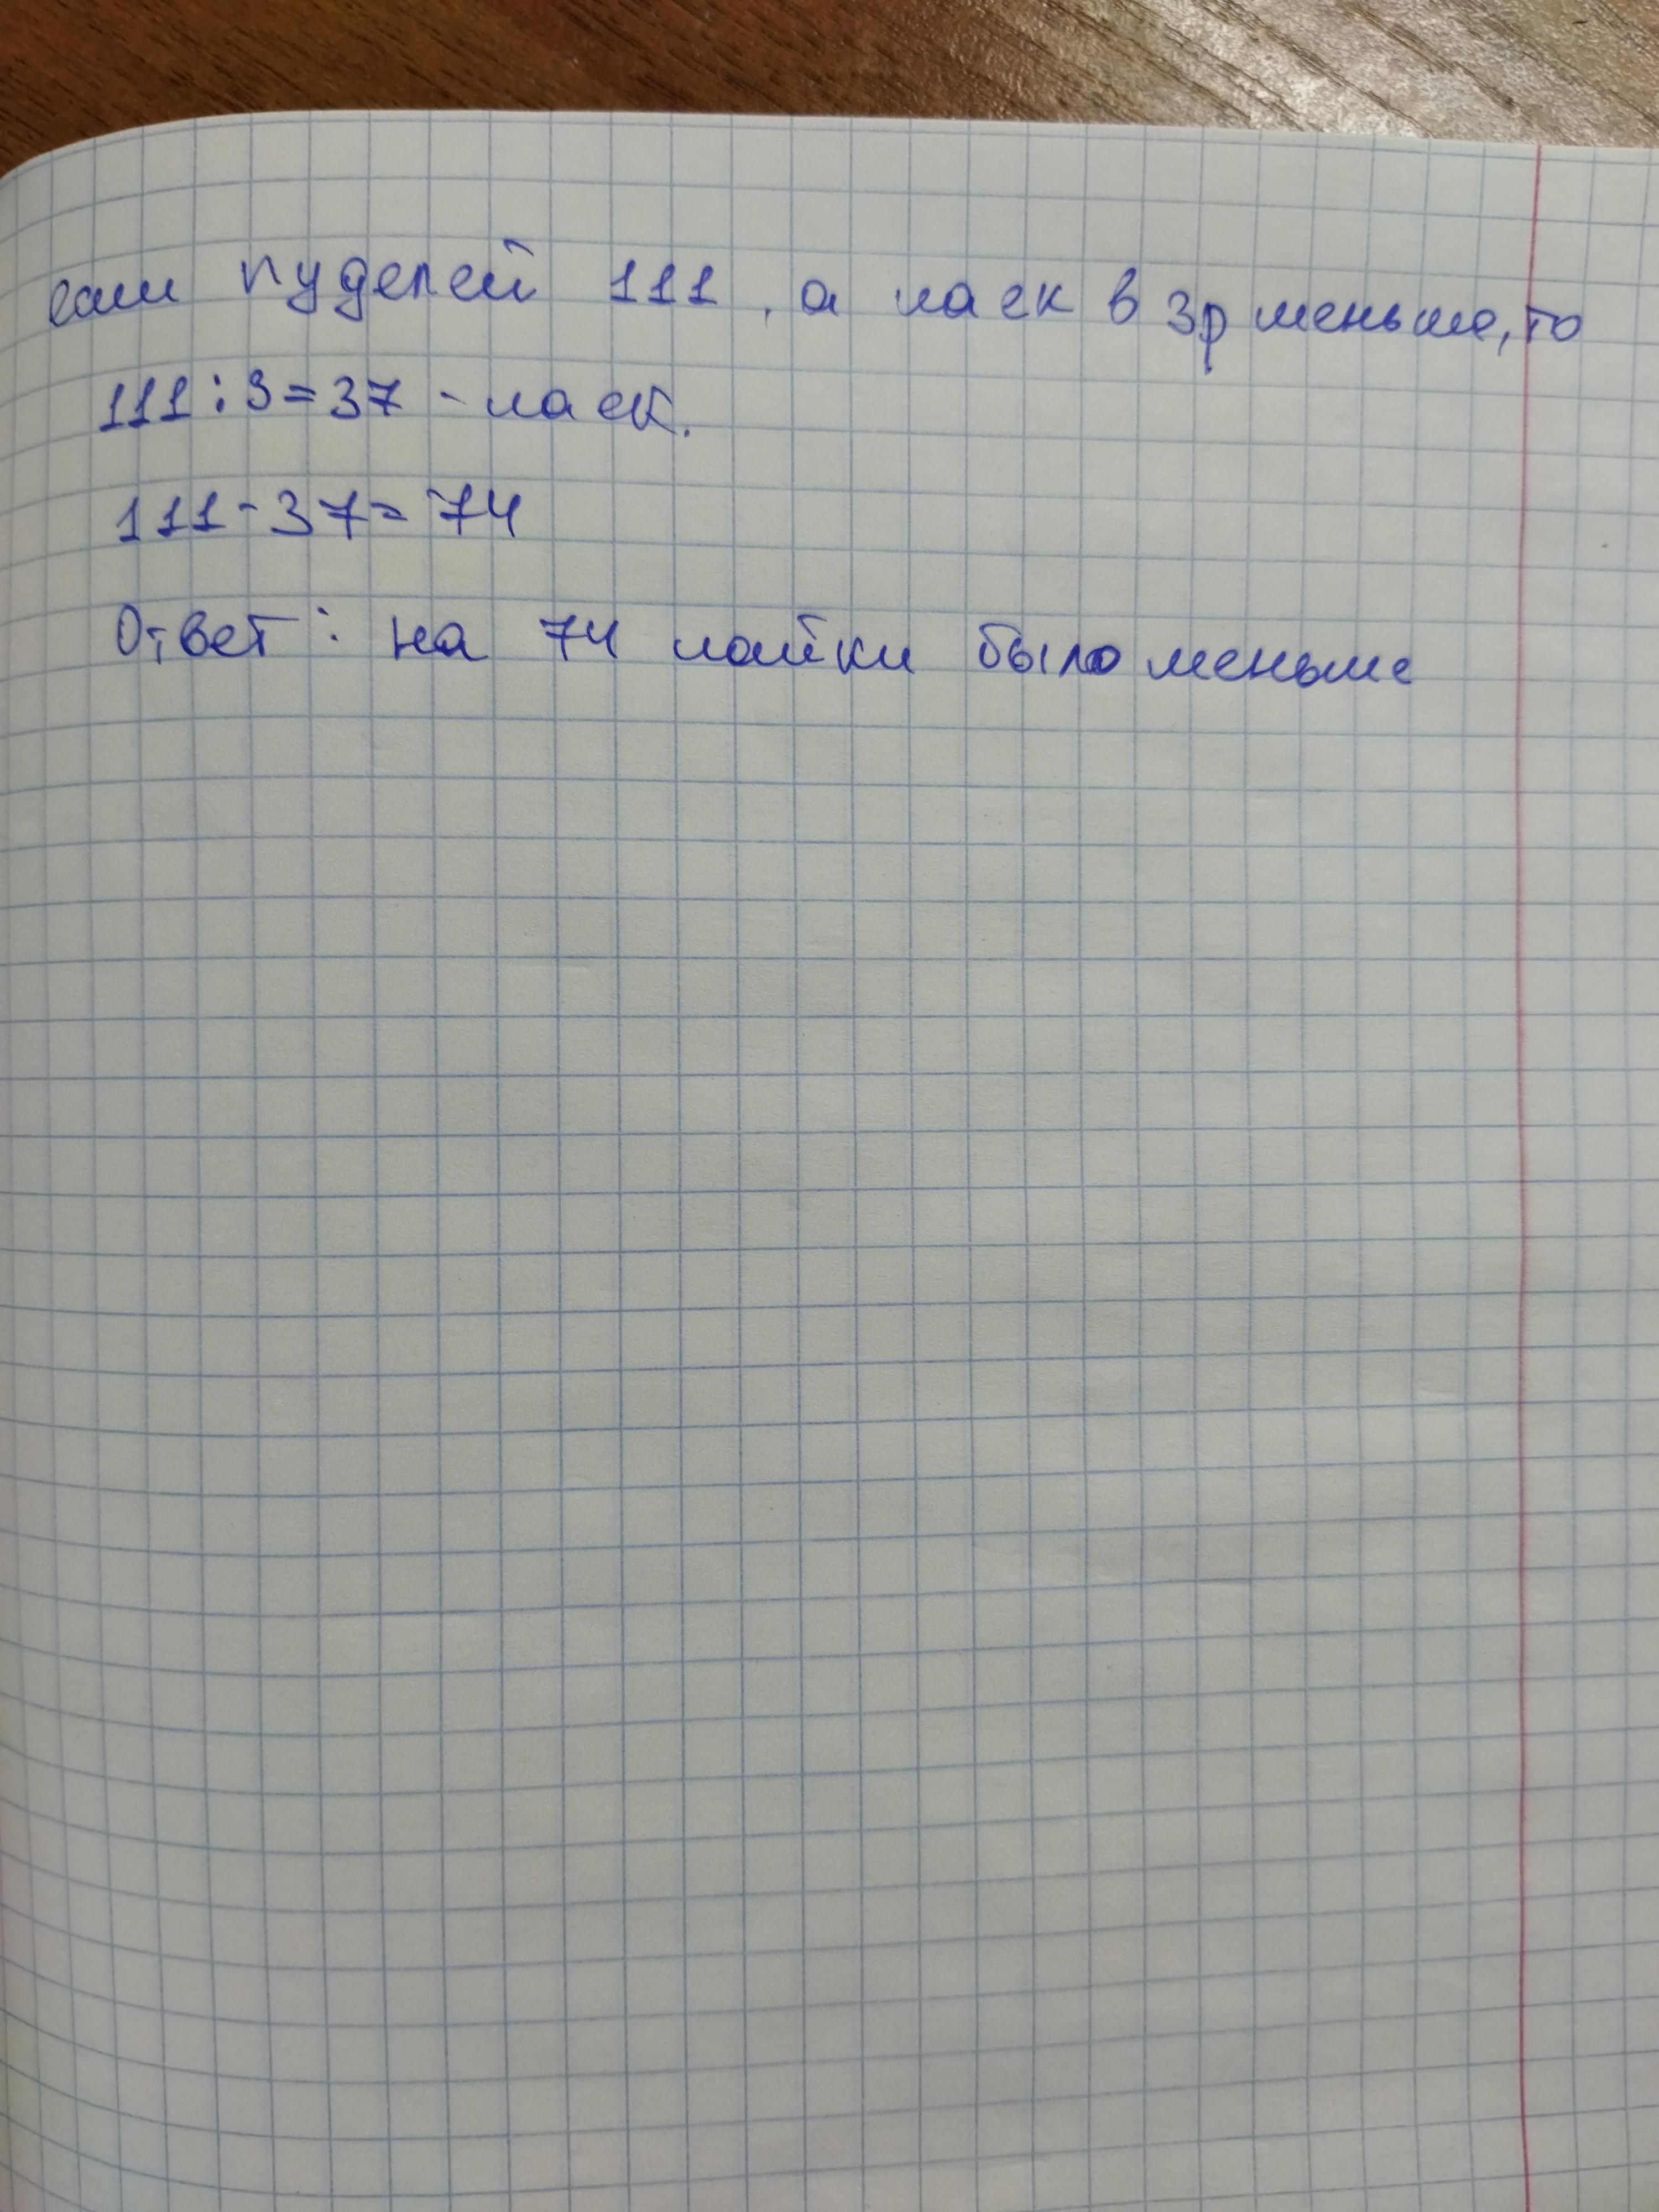 если пуделей 111, а лаек в 3р меньше, то
111:3=37 - лаек.
111-37=74
Ответ: на 74 лайки было меньше